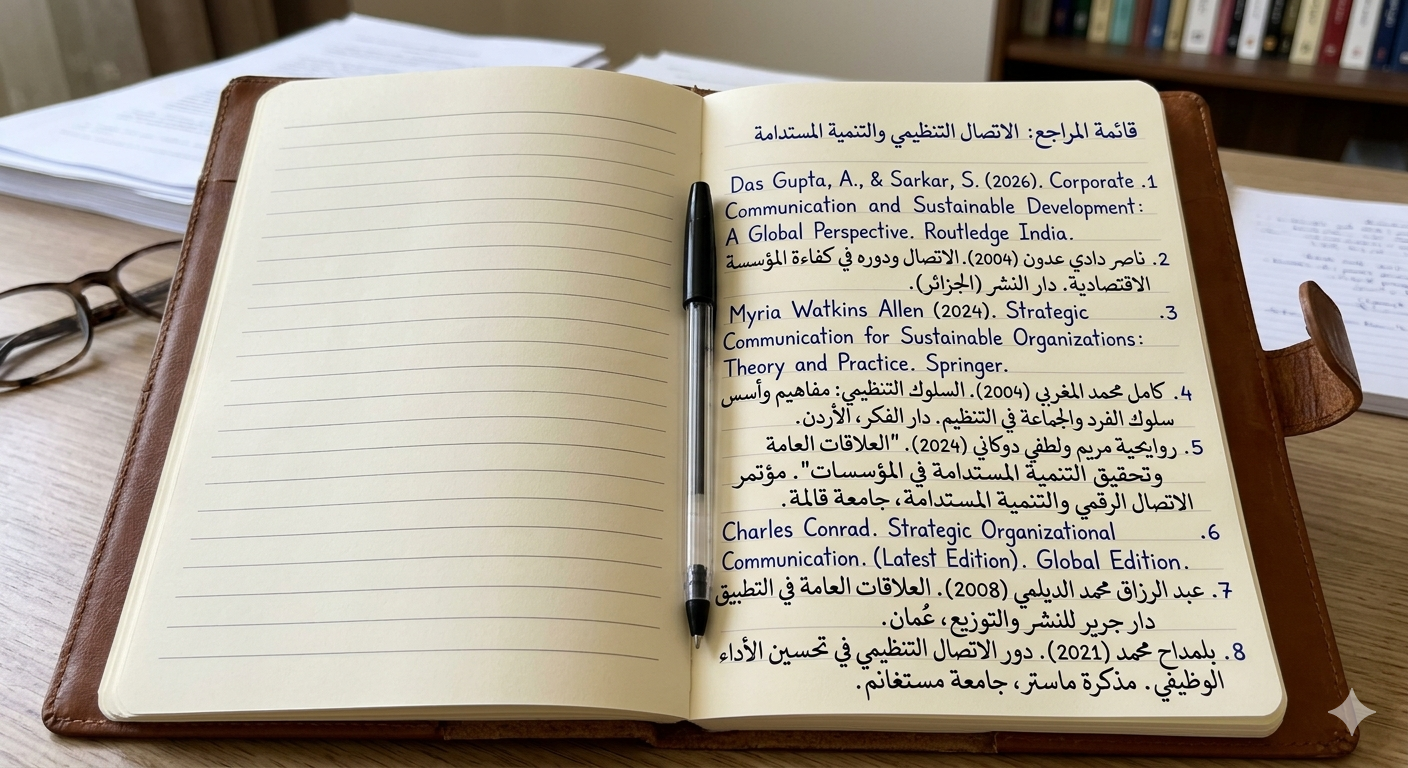 قائمة المراجع: الاتصال التنظيمي والتنمية المستدامة
1. Das Gupta, A., & Sarkar, S. (2026). Corporate
Communication and Sustainable Development:
A Global Perspective. Routledge India.
2. ناصر دادي عدون (2004). الاتصال ودوره في كفاءة المؤسسة
الاقتصادية. دار النشر (الجزائر).
3. Myria Watkins Allen (2024). Strategic
Communication for Sustainable Organizations:
Theory and Practice. Springer.
4. كامل محمد المغربي (2004). السلوك التنظيمي: مفاهيم وأسس
سلوك الفرد والجماعة في التنظيم. دار الفكر، الأردن.
5. روايحية مريم ولطفي دوكاني (2024). "العلاقات العامة
وتحقيق التنمية المستدامة في المؤسسات". مؤتمر
الاتصال الرقمي والتنمية المستدامة، جامعة قالمة.
6. Charles Conrad. Strategic Organizational
Communication. (Latest Edition). Global Edition.
7. عبد الرزاق محمد الديلمي (2008). العلاقات العامة في التطبيق
دار جرير للنشر والتوزيع، عُمان.
8. بلمداح محمد (2021). دور الاتصال التنظيمي في تحسين الأداء
الوظيفي. مذكرة ماستر، جامعة مستغانم.